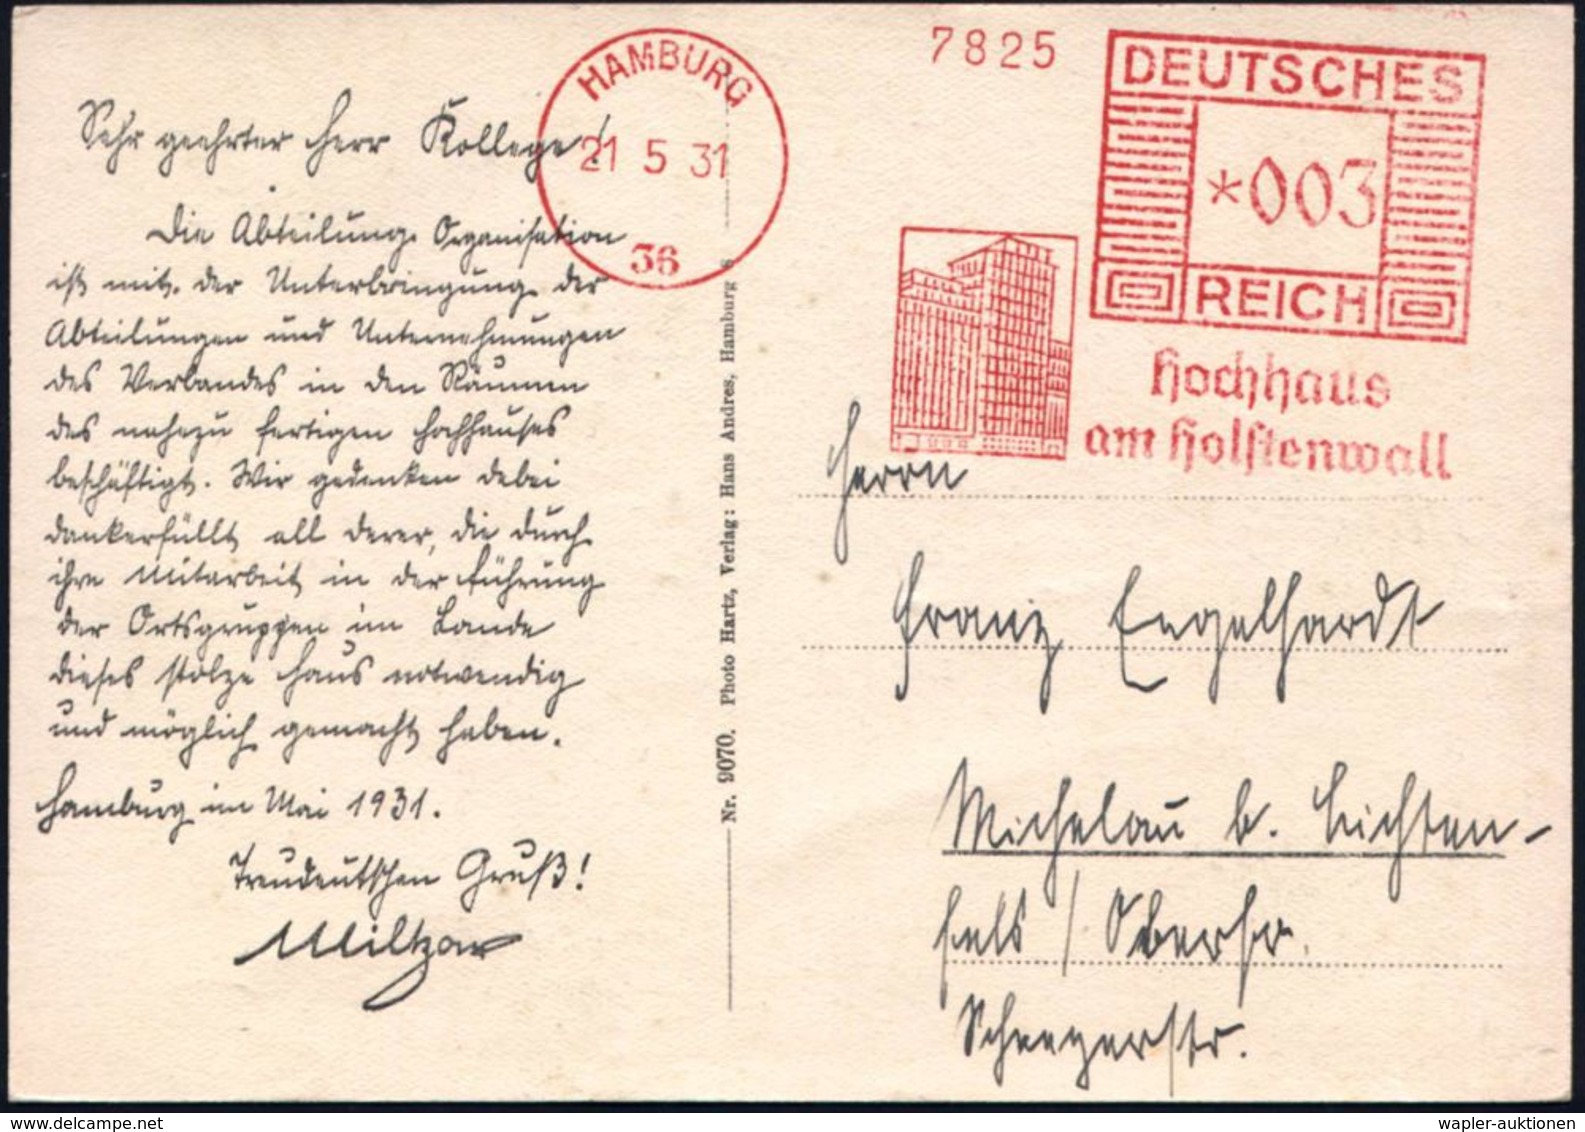 Sehr geehrter Herr Kollege!
Die Abteilung Organisation
ist mit der Unterbringung der
Abteilungen und Unternehmungen
des Verbandes in den Räumen
des nahezu fertigen Hochhauses
beschäftigt. Wir gedenken dabei
dankerfüllt all derer, die durch
ihre Mitarbeit in der Führung
der Ortsgruppen im Lande
dieses stolze Haus notwendig
und möglich gemacht haben.
Hamburg im Mai 1931.
Treudeutschen Gruß!
HAMBURG
21 5 31
36
Nr. 9070. Photo Hartz, Verlag: Hans Andres, Hamburg
7825
DEUTSCHES
*003
REICH
Hochhaus
am Holstenwall
Herrn
Franz Engelhardt
Michelau b. Lichten-
fels / Oberfr.
wapler-auktionen